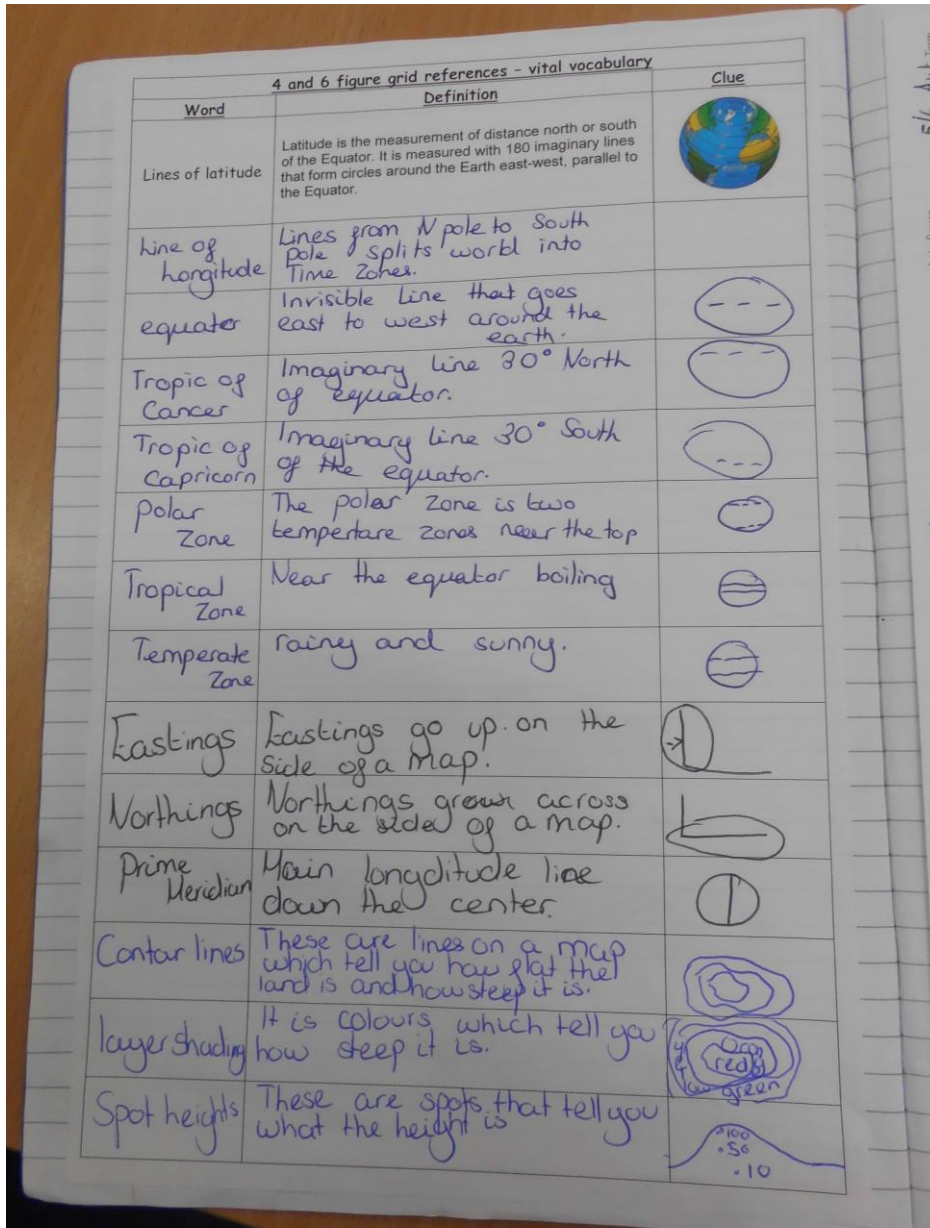 4 and 6 figure grid references - vital vocabulary
Word
Definition
Clue
Lines of latitude
Latitude is the measurement of distance north or south
of the Equator. It is measured with 180 imaginary lines
that form circles around the Earth east-west, parallel to
the Equator.
Line of
Longitude
Lines from N pole to South
pole splits world into
Time Zones.
equator
Invisible Line that goes
east to west around the
earth.
Tropic of
Cancer
Imaginary Line 30° North
of equator.
Tropic of
Capricorn
Imaginary Line 30° South
of the equator.
Polar
Zone
The polar zone is two
tempertare zones near the top
Tropical
Zone
Near the equator boiling
Temperate
Zone
rainy and sunny.
Eastings
Eastings go up on the
side of a map.
Northings
Northings across
on the side of a map.
Prime
Meridian
Main longditude line
down the center.
Contour lines
These are lines on a map
which tell you how flat the
land is and how steep it is.
layer shading
It is colours which tell you
how steep it is.
red
green
Spot heights
These are spots that tell you
what the height is
.100
.50
.10